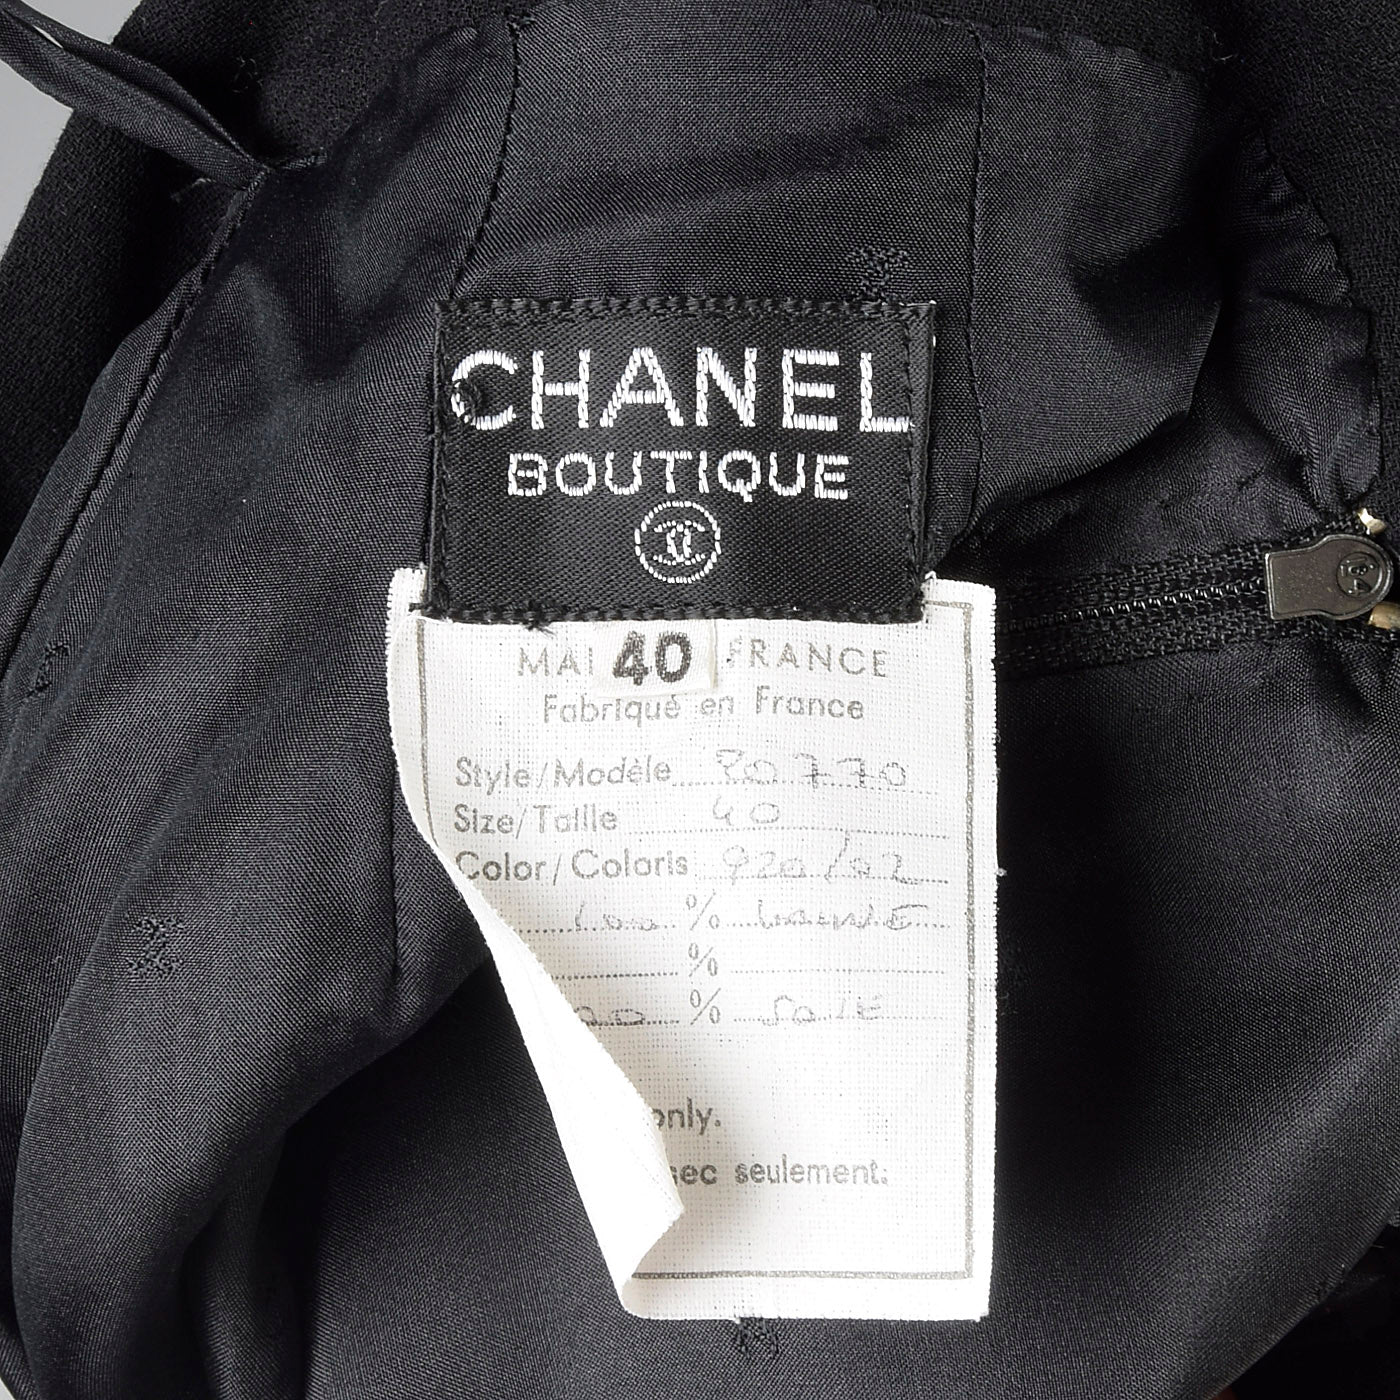 CHANEL
BOUTIQUE
MAI 40 FRANCE
Fabriqué en France
Style/Modèle 20770
Size/Taille 40
Color/Coloris 920/02
100 % LAINE
%
00 % SOIE
only.
sec seulement.